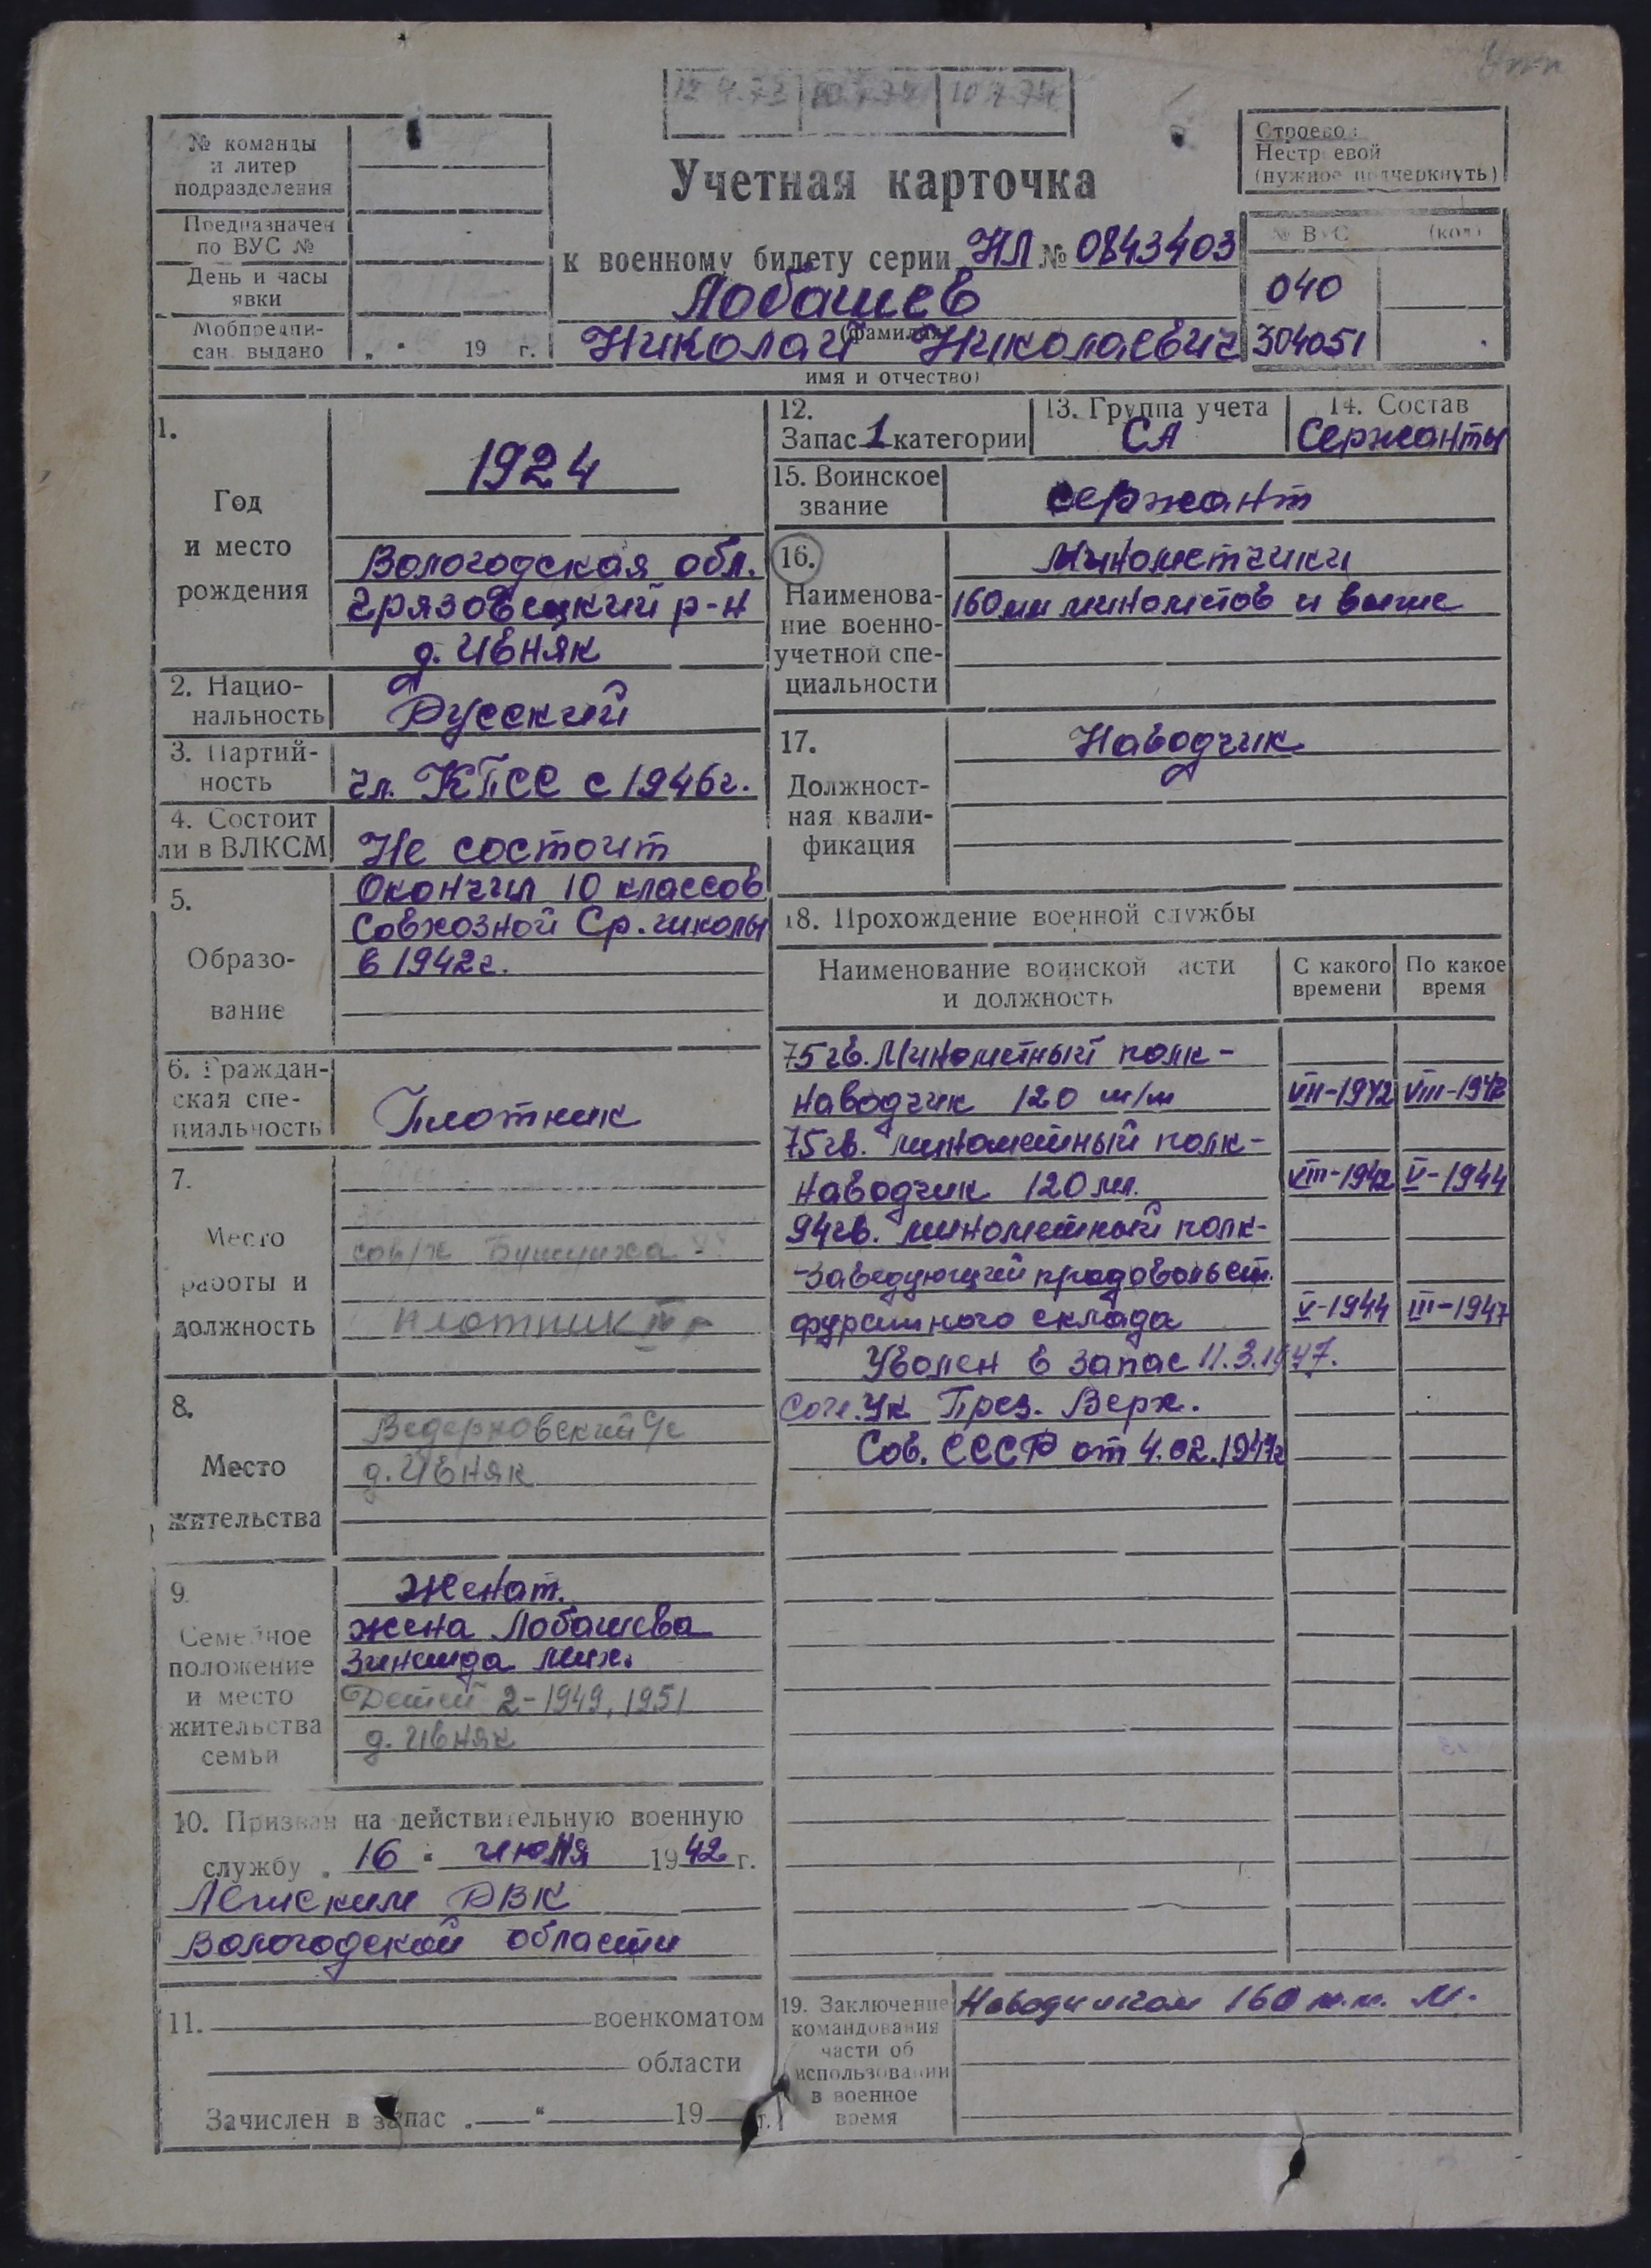 12.4.73
10.7.74
№ команды
и литер
подразделения
Предназначен
по ВУС №
День и часы
явки
Мобпредпи-
сан. выдано „ “ 19 г.
Учетная карточка
к военному билету серии НЛ № 0843403
Лобашев
(фамилия)
Николай Николаевич
имя и отчество)
Строево
Нестр евой
(нужное подчеркнуть)
№ ВУС (код)
040
304051
1.
Год
и место
рождения
1924
Вологодская обл.
Грязовецкий р-н
д. Ивняк
2. Нацио-
нальность
Русский
3. Партий-
ность
чл. КПСС с 1946г.
4. Состоит
ли в ВЛКСМ
Не состоит
5.
Образо-
вание
Окончил 10 классов
Совхозной Ср. школы
в 1942г.
6. Граждан-
ская спе-
циальность
Плотник
7.
Место
работы и
должность
сов/х
плотник
8.
Место
жительства
Ведерковский с/с
д. Ивняк
9.
Семейное
положение
и место
жительства
семьи
Женат.
жена Лобашева
Зинаида Мих.
Детей 2-1949, 1951
д. Ивняк
10. Призван на действительную военную
службу „ 16 “ июня 1942 г.
Лежским РВК
Вологодской области
11. военкоматом
области
Зачислен в запас „ “ 19 г.
12.
Запас 1 категории
13. Группа учета
СА
14. Состав
Сержанты
15. Воинское
звание
сержант
16.
Наименова-
ние военно-
учетной спе-
циальности
Минометчики
160мм минометов и выше
17.
Должност-
ная квали-
фикация
Наводчик
18. Прохождение военной службы
Наименование воинской асти
и должность
С какого
времени
По какое
время
75гв. Минометный полк-
наводчик 120 м/м VII-1942 VIII-1942
75гв. минометный полк-
наводчик 120мм. VIII-1942 V-1944
94гв. минометный полк-
-заведующий продовольст.
фуражного склада V-1944 III-1947
Уволен в запас 11.3.1947.
Согл. Ук. През. Верх.
Сов. СССР от 4.02.1947г
19. Заключение
командования
части об
использовании
в военное
время
Наводчиком 160 м.м. М.